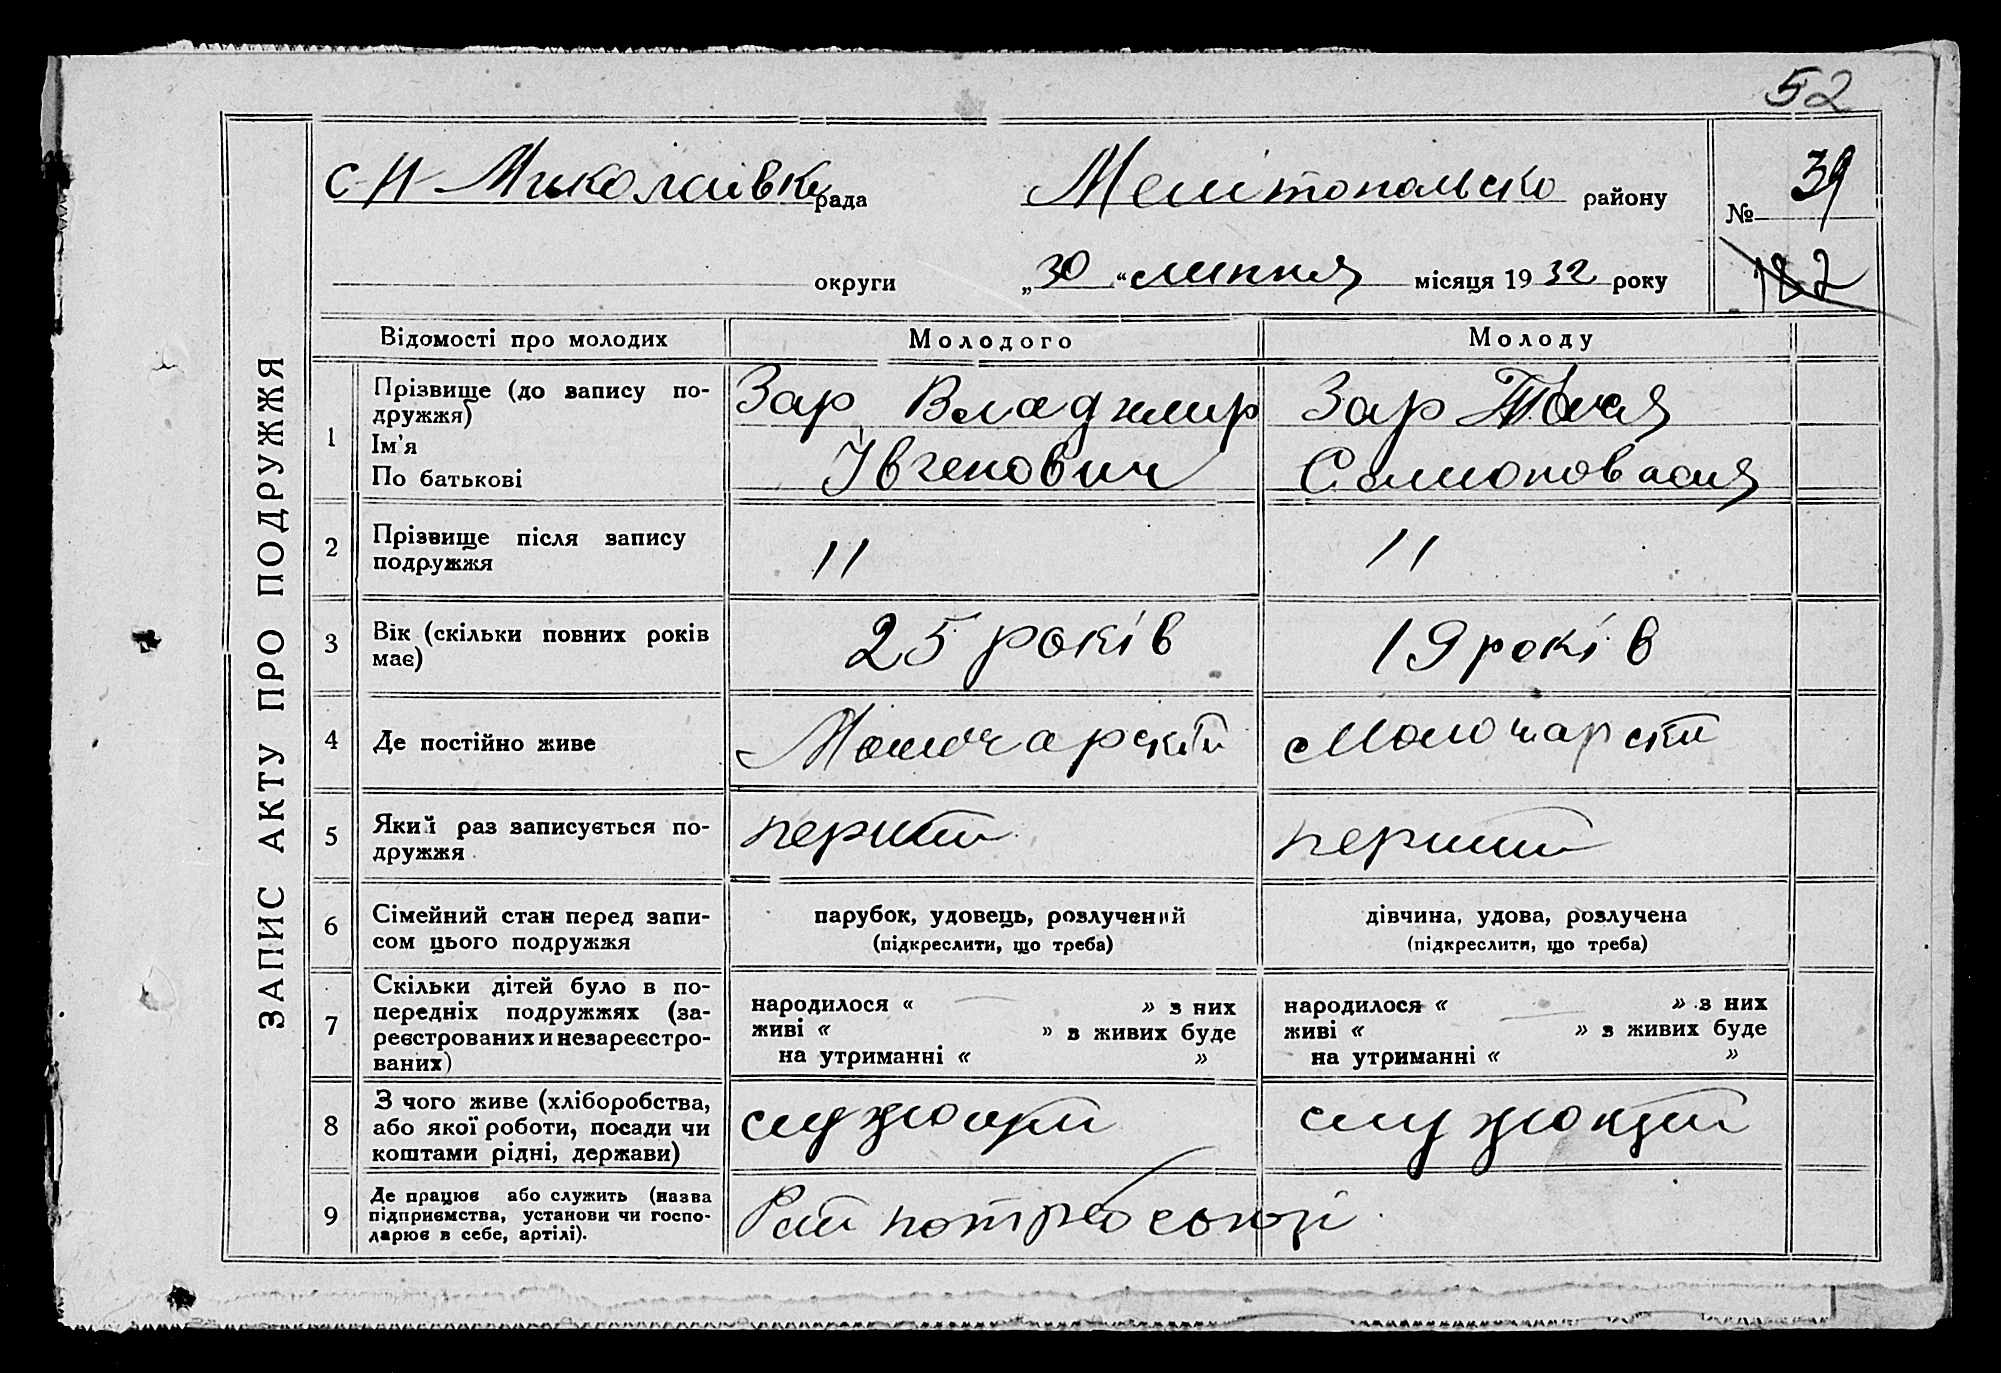 52
с Н Миколаівка рада Мелітопольско району № 39
округи „30“ липня місяця 1932 року 182
ЗАПИС АКТУ ПРО ПОДРУЖЖЯ
Відомості про молодих Молодого Молоду
1 Прізвище (до запису по-
дружжя)
Ім'я
По батькові
Зар Владжмир
Івгенович
Зар
Самионовная
2 Прізвище після запису
подружжя
11 11
3 Вік (скільки повних років
має)
25 років 19 років
4 Де постійно живе Молочарскій Молочарскій
5 Який раз записується по-
дружжя
перший перший
6 Сімейний стан перед запи-
сом цього подружжя
парубок, удовець, розлучений
(підкреслити, що треба)
дівчина, удова, розлучена
(підкреслити, що треба)
7 Скільки дітей було в по-
передніх подружжях (за-
реєстрованих и незареєстро-
ваних)
народилося « » з них
живі « » з живих буде
на утриманні « »
народилося « » з них
живі « » з живих буде
на утриманні « »
8 З чого живе (хліборобства,
або якої роботи, посади чи
коштами рідні, держави)
служощи служокций
9 Де працює або служить (назва
підприємства, установи чи госпо-
дарює в себе, артілі).
Рай